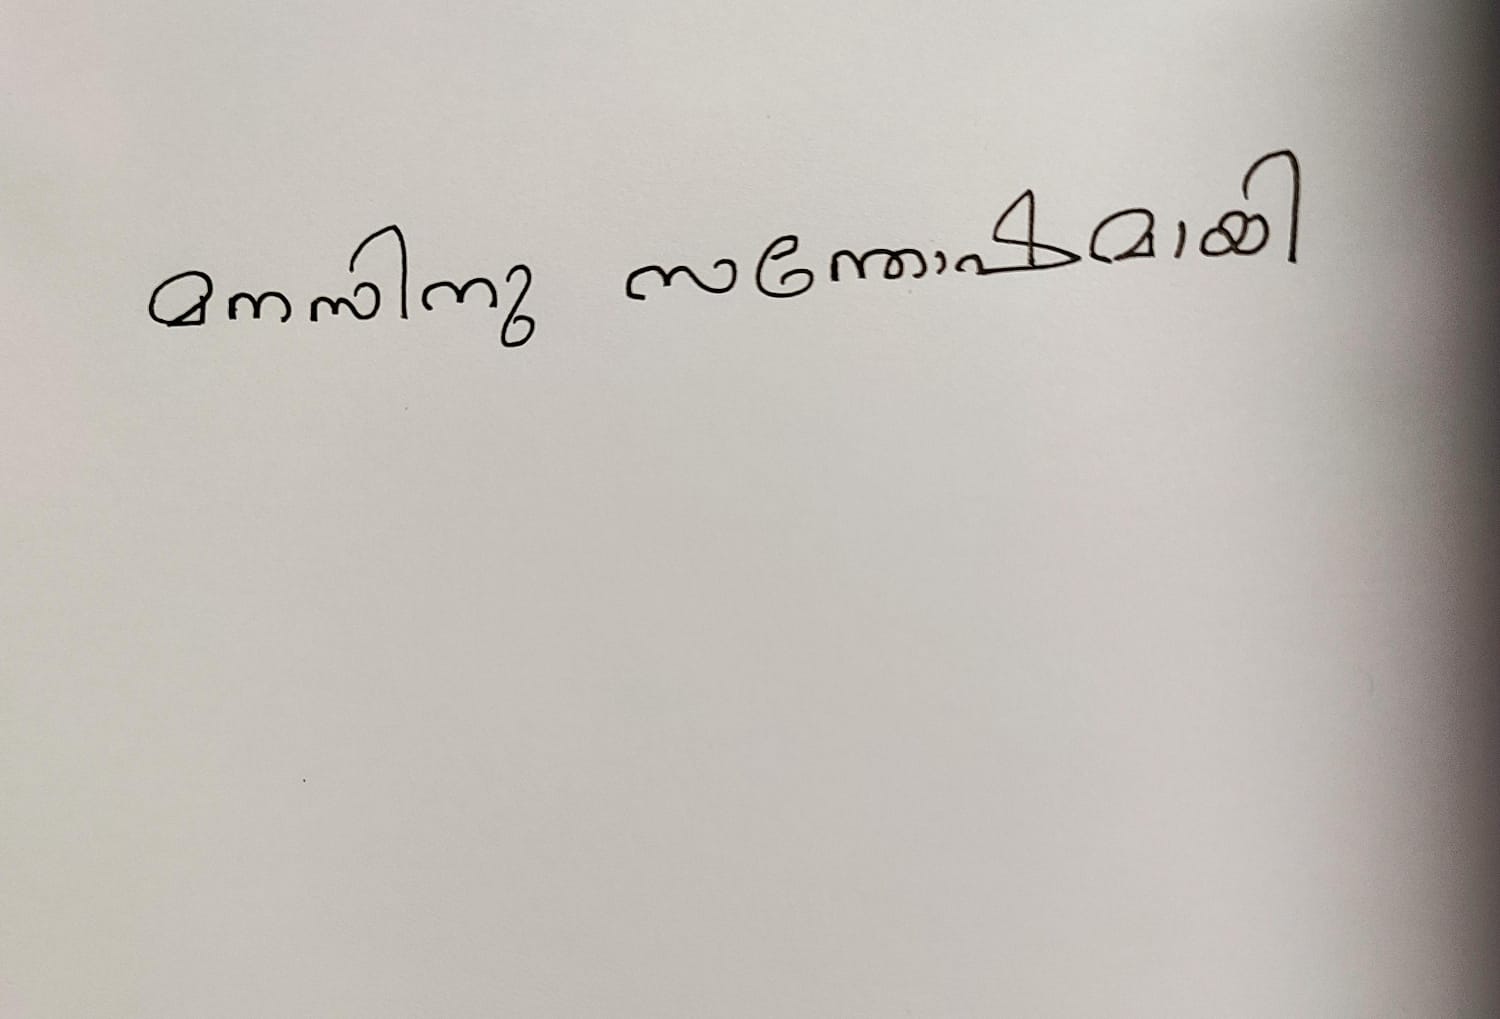 മനസിനു സന്തോഷമായി